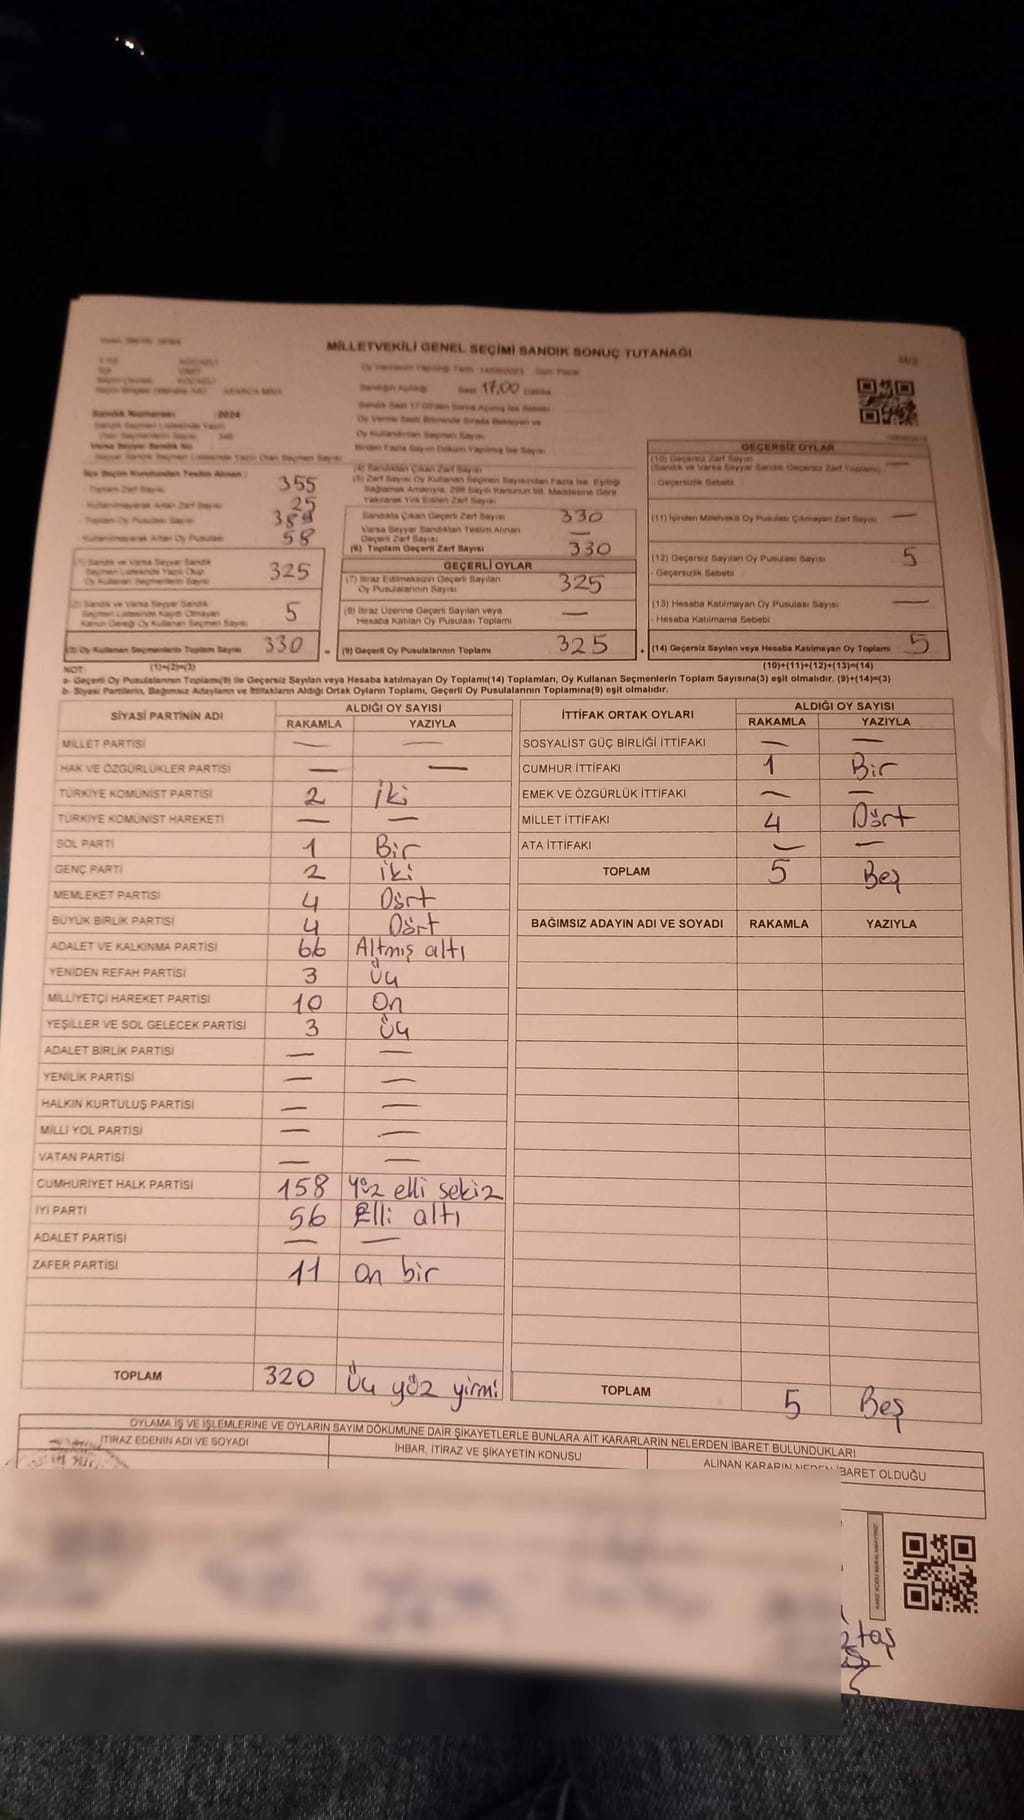 MİLLETVEKİLİ GENEL SEÇİMİ SANDIK SONUÇ TUTANAĞI
Sandık Numarası : 2024
Saat 17,00
355
25
Toplam Oy Pusulası Sayısı
58
(1) Sandık ve Varsa Seyyar Sandık
Seçmen Listesinde Yazılı Olup
Oy Kullanan Seçmenlerin Sayısı 325
(2) Sandık ve Varsa Seyyar Sandık
Seçmen Listesinde Kayıtlı Olmayan
Kanun Gereği Oy Kullanan Seçmen Sayısı 5
(3) Oy Kullanan Seçmenlerin Toplam Sayısı 330
(4) Sandıktan Çıkan Zarf Sayısı
(5) Zarf Sayısı Oy Kullanan Seçmen Sayısından Fazla İse, Eşitliği
Sağlamak Amacıyla, 298 Sayılı Kanunun 98. Maddesine Göre
Yakılarak Yok Edilen Zarf Sayısı
Sandıkta Çıkan Geçerli Zarf Sayısı 330
Varsa Seyyar Sandıktan Teslim Alınan
Geçerli Zarf Sayısı —
(6) Toplam Geçerli Zarf Sayısı 330
GEÇERLİ OYLAR
(7) İtiraz Edilmeksizin Geçerli Sayılan
Oy Pusulalarının Sayısı 325
(8) İtiraz Üzerine Geçerli Sayılan veya
Hesaba Katılan Oy Pusulası Toplamı —
= (9) Geçerli Oy Pusulalarının Toplamı 325
GEÇERSİZ OYLAR
(10) Geçersiz Zarf Sayısı
(Sandık ve Varsa Seyyar Sandık Geçersiz Zarf Toplamı) —
- Geçersizlik Sebebi
(11) İçinden Milletvekili Oy Pusulası Çıkmayan Zarf Sayısı —
(12) Geçersiz Sayılan Oy Pusulası Sayısı 5
- Geçersizlik Sebebi
(13) Hesaba Katılmayan Oy Pusulası Sayısı —
- Hesaba Katılmama Sebebi
+ (14) Geçersiz Sayılan veya Hesaba Katılmayan Oy Toplamı 5
NOT: (1)+(2)=(3) (10)+(11)+(12)+(13)=(14)
a- Geçerli Oy Pusulalarının Toplamı(9) ile Geçersiz Sayılan veya Hesaba katılmayan Oy Toplamı(14) Toplamları, Oy Kullanan Seçmenlerin Toplam Sayısına(3) eşit olmalıdır. (9)+(14)=(3)
b- Siyasi Partilerin, Bağımsız Adayların ve İttifakların Aldığı Ortak Oyların Toplamı, Geçerli Oy Pusulalarının Toplamına(9) eşit olmalıdır.
SİYASİ PARTİNİN ADI ALDIĞI OY SAYISI
RAKAMLA YAZIYLA
MİLLET PARTİSİ — —
HAK VE ÖZGÜRLÜKLER PARTİSİ — —
TÜRKİYE KOMÜNİST PARTİSİ 2 İki
TÜRKİYE KOMÜNİST HAREKETİ — —
SOL PARTİ 1 Bir
GENÇ PARTİ 2 İki
MEMLEKET PARTİSİ 4 Dört
BÜYÜK BİRLİK PARTİSİ 4 Dört
ADALET VE KALKINMA PARTİSİ 66 Altmış altı
YENİDEN REFAH PARTİSİ 3 Üç
MİLLİYETÇİ HAREKET PARTİSİ 10 On
YEŞİLLER VE SOL GELECEK PARTİSİ 3 Üç
ADALET BİRLİK PARTİSİ — —
YENİLİK PARTİSİ — —
HALKIN KURTULUŞ PARTİSİ — —
MİLLİ YOL PARTİSİ — —
VATAN PARTİSİ — —
CUMHURİYET HALK PARTİSİ 158 Yüz elli sekiz
İYİ PARTİ 56 Elli altı
ADALET PARTİSİ — —
ZAFER PARTİSİ 11 On bir
TOPLAM 320 Üç yüz yirmi
İTTİFAK ORTAK OYLARI ALDIĞI OY SAYISI
RAKAMLA YAZIYLA
SOSYALİST GÜÇ BİRLİĞİ İTTİFAKI — —
CUMHUR İTTİFAKI 1 Bir
EMEK VE ÖZGÜRLÜK İTTİFAKI — —
MİLLET İTTİFAKI 4 Dört
ATA İTTİFAKI — —
TOPLAM 5 Beş
BAĞIMSIZ ADAYIN ADI VE SOYADI RAKAMLA YAZIYLA
TOPLAM 5 Beş
OYLAMA İŞ VE İŞLEMLERİNE VE OYLARIN SAYIM DÖKÜMÜNE DAİR ŞİKAYETLERLE BUNLARA AİT KARARLARIN NELERDEN İBARET BULUNDUKLARI
İTİRAZ EDENİN ADI VE SOYADI
İHBAR, İTİRAZ VE ŞİKAYETİN KONUSU
ALINAN KARARIN NEDEN İBARET OLDUĞU